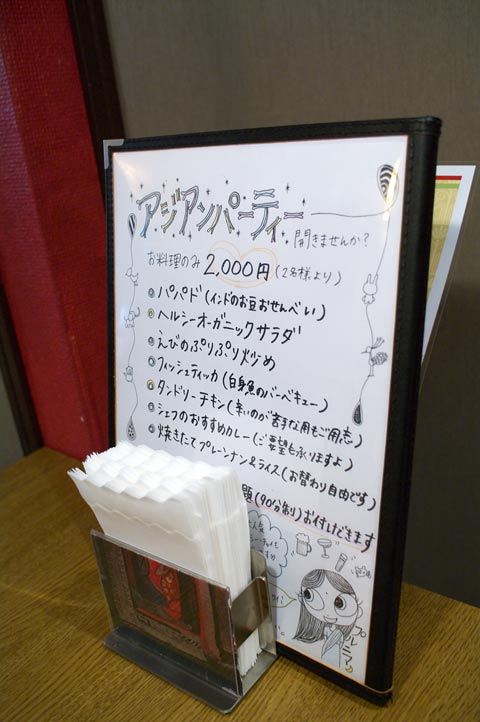 アジアンパーティー
開きませんか?
お料理のみ 2,000円 (2名様より)
パパド (インドのお豆おせんべい)
ヘルシーオーガニックサラダ
えびのぷりぷり炒め
フィッシュティッカ (白身魚のバーベキュー)
タンドリーチキン (辛いのが苦手な用もご用意)
シェフのおすすめカレー (ご要望も承りますよ)
焼きたてプレーンナン&ライス (お替わり自由です)
題 (90分制) お付けできます
人気
プルニマ